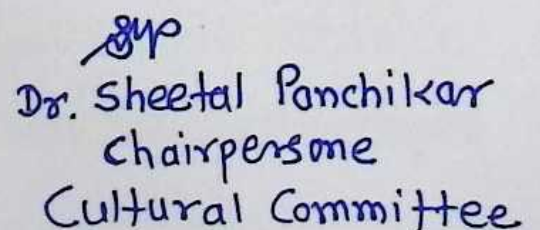 Dr. Sheetal Panchikar
Chairpersone
Cultural Committee